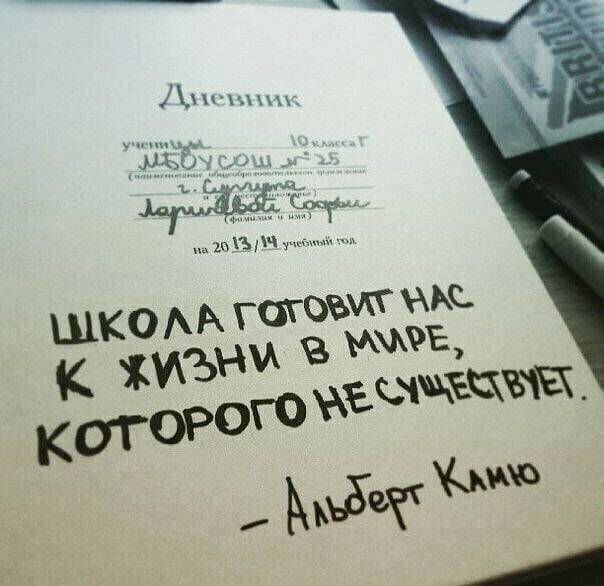 Дневник
ученицы 10 класса Г
МБОУСОШ №25
(наименование общеобразовательного учреждения
г. Сургута
и местоположение)
Софьи
(фамилия и имя)
на 20 13/14 учебный год
ШКОЛА ГОТОВИТ НАС
К ЖИЗНИ В МИРЕ,
КОТОРОГО НЕ СУЩЕСТВУЕТ.
– Альберт Камю